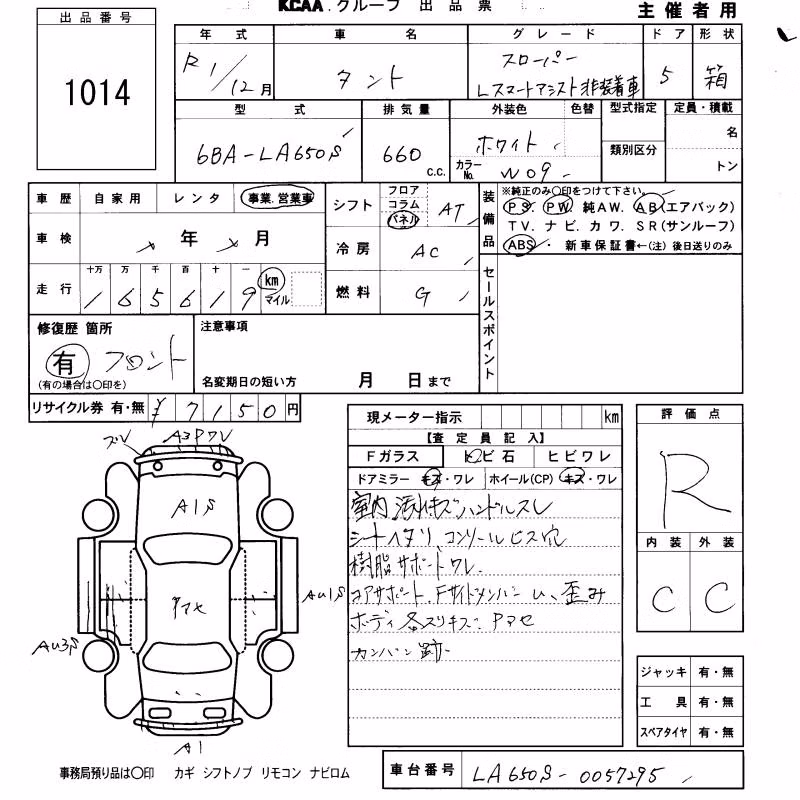 KCAA.グループ 出品票
主催者用
出品番号
1014
年式 車名 グレード ドア 形状
R1/12月 タント スローパー Lスマートアシスト非装着車 5 箱
型式 排気量 外装色 色替 型式指定 定員・積載
6BA-LA650S 660 C.C. ホワイト 名
カラーNo. W09 類別区分 トン
車歴 自家用 レンタ 事業.営業車
車検 年 月
走行 十万 万 千 百 十 一
1 6 5 6 1 9 km マイル
シフト フロア コラム パネル AT
冷房 AC
燃料 G
装備品 ※純正のみ○印をつけて下さい。
PS. PW. 純AW. AB(エアバック)
TV. ナビ. カワ. SR(サンルーフ)
ABS・ 新車保証書←(注) 後日送りのみ
セールスポイント
修復歴 箇所
有 フロント
(有の場合は○印を)
注意事項
名変期日の短い方 月 日まで
リサイクル券 有・無 ¥ 7 1 5 0 円
現メーター指示 km
【査定員記入】
Fガラス トビ石 ヒビワレ
ドアミラー キズ・ワレ ホイール(CP) キズ・ワレ
室内 汚れキズ ハンドルスレ
シートヘタリ、コンソールビス穴
樹脂サポートワレ.
コアサポート. Fサイドメンバー 歪み
ボディ各スリキズ. Pマセ
カンバン跡
評価点
R
内装 外装
C C
ジャッキ 有・無
工具 有・無
スペアタイヤ 有・無
ズレ A3Pワレ
A1S
Pマセ
AU1S
AU3S
A1
事務局預り品は○印 カギ シフトノブ リモコン ナビロム
車台番号 LA650S-0057295